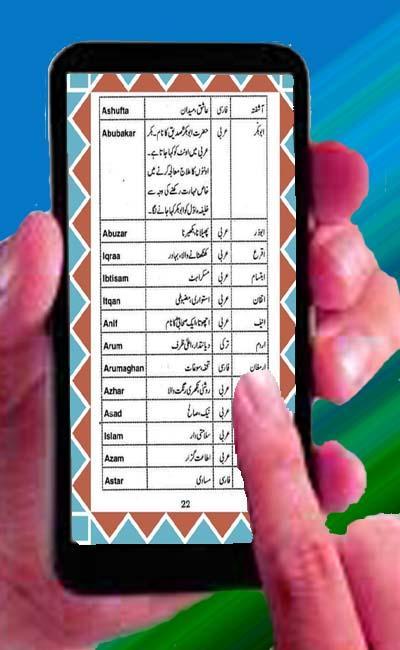 Ashufta عاشق، میدان فارسی آشفتہ
Abubakar حضرت ابوبکر صدیق کا نام۔ بکر عربی ابوبکر
عربی میں اونٹ کو کہا جاتا ہے۔
اونٹوں کا علاج معالجہ کرنے میں
خاص مہارت رکھنے کی وجہ سے
خلیفہ اول کو ابوبکر کہا جانے لگا۔
Abuzar پھیلانا، بکھیرنا عربی ابوذر
Iqraa کھٹکھٹانے والا، بہادر عربی اقرع
Ibtisam مسکراہٹ عربی ابتسام
Itqan استواری، مضبوطی عربی اتقان
Anif اچھوتا، ایک صحابی کا نام عربی انیف
Arum دیانتدار، اعلیٰ ظرف ترکی ارم
Arumaghan تحفہ، سوغات فارسی ارمغان
Azhar روشنی، نکھری رنگت والا عربی
Asad نیک، صالح عربی
Islam سلامتی دار عربی
Azam اطاعت گزار عربی
Astar مساوی فارسی
22